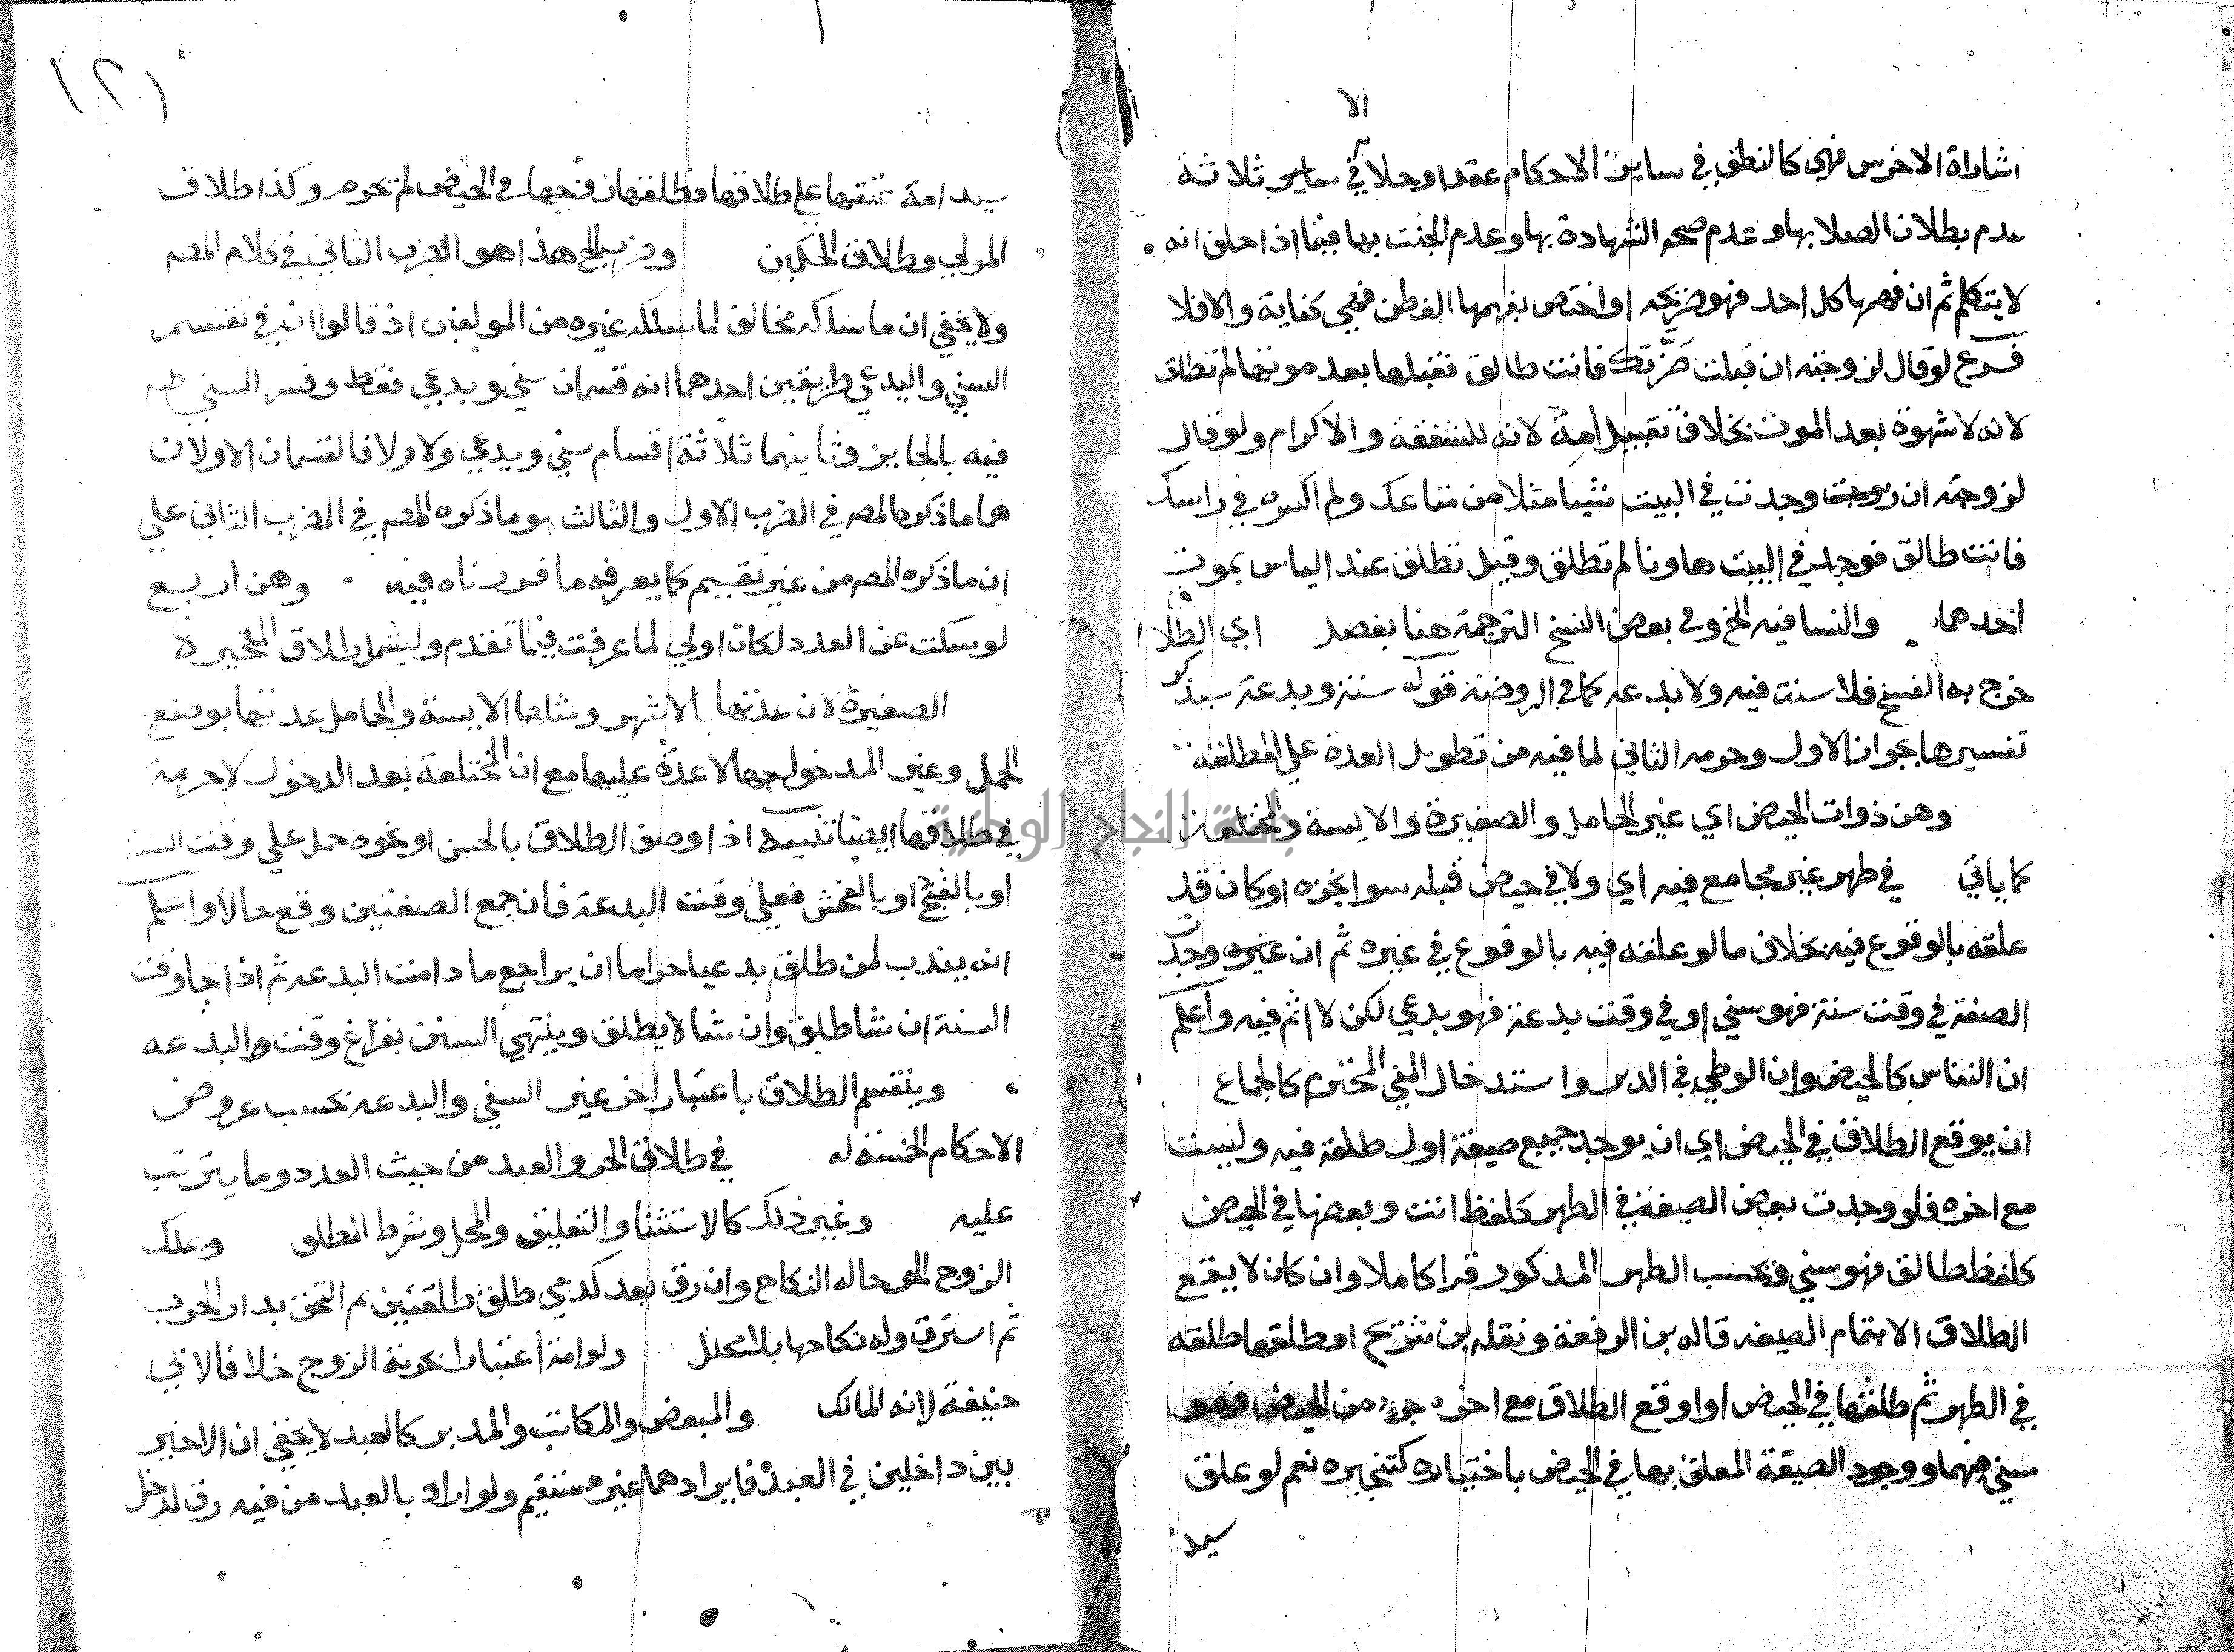 الا
اشاراة الاخرس فهي كالنطق في ساير الاحكام عقدا وحلا في ساير ثلاثة
عدم بطلان الصلا بها وعدم صحه الشهادة بها وعدم الحنث بها فيما اذا حلف انه
لا يتكلم ثم ان فهمها كل احد فهو صريحه او اختص بفهمها الفطن فهي كناية والا فلا
فرع لو قال لزوجته ان قبلت ضرتك فانت طالق فقبلها بعد موتها لم تطلق
لانه لا شهوة بعد الموت بخلاف تقبيل امه لانه للشفقة والاكرام ولو قال
لزوجته ان وجدت في البيت شيا مثلا من متاعك ولم اكسره في راسك
فانت طالق فوجد في البيت هاونا لم تطلق وقيل تطلق عند الياس بموت
احدهما والنسا فيه الخ وفي بعض النسخ الترجمة هنا بفصل اي الطلا
خرج به الفسخ فلا سنة فيه ولا بدعه كما في الروضة قوله سنة وبدعة سيذكر
تفسيرها بجواز الاول وحرمه الثاني لما فيه من تطويل العدة علي المطلقة
وهن ذوات الحيض اي غير الحامل والصغيرة والايسة والمختلعة
كما ياتي في طهر غير مجامع فيه اي ولا في حيض قبله سوا نجزه او كان قد
علقه بالوقوع فيه بخلاف ما لو علقه فيه بالوقوع في غيره ثم ان غيره وجدت
الصفة في وقت سنة فهو سني او في وقت بدعة فهو بدعي لكن لا اثم فيه واعلم
ان النفاس كالحيض وان الوطي في الدبر واستدخال المني المحترم كالجماع
ان يوقع الطلاق في الحيض اي ان يوجد جميع صيغة اول طلقة فيه وليست
مع اخره فلو وجدت بعض الصيغة في الطهر كلفظ انت وبعضها في الحيض
كلفظ طالق فهو سني ويحسب الطهر المذكور قرا كاملا وان كان لا يقع
الطلاق الا بتمام الصيغه قاله بن الرفعة ونقله بن شريح او طلقها طلقه
في الطهر ثم طلقها في الحيض او اوقع الطلاق مع اخر جزء من الحيض فهو
سني فيهما ووجود الصيغة المعلق بها في الحيض باختياره كتنجيزه نعم لو علق
سيد
(٢١
سيد امة عتقها علي طلاقها فطلقها زوجها في الحيض لم تحرم وكذا طلاق
المولي وطلاق الحكمين وضرب الخ هذا هو الضرب الثاني في كلام المصه
ولا يخفي ان ما سلكه مخالف لما سلكه غيره من المولفين اذ قالوا انه في تقسيم
السني والبدعي طريقين احدهما انه قسمان سني وبدعي فقط وفسر السني
فيه بالجايز وثانيهما ثلاثة اقسام سني وبدعي ولا ولا فالقسمان الاولان
هما ما ذكره المصه في الضرب الاول والثالث هو ما ذكره المصه في الضرب الثاني علي
ان ما ذكره المصه من غير تقسيم كما يعرفه ما قررناه فيه وهن اربع
لو سكت عن العدد لكان اولي لما عرفت فيما تقدم وليشمل طلاق المتحيرة
الصغيرة لان عدتها بالاشهر ومثلها الايسة والحامل عدتها بوضع
الحمل وغير المدخول بها لا عدة عليها مع ان المختلعة بعد الدخول لا حرمة
في طلاقها ايضا تنبيه اذا وصف الطلاق بالحسن او نحوه حمل علي وقت
او بالقبح او بالفحش فعلي وقت البدعة فان جمع الصفتين وقع حالا واعلم
انه يندب لمن طلق بدعيا حراما ان يراجع ما دامت البدعه ثم اذا جا وقت
السنة ان شا طلق وان شا لا يطلق وينتهي السنن بفراغ وقت البدعه
وينقسم الطلاق باعتبار اخر غير السني والبدعه بحسب عروض
الاحكام الخمسة له في طلاق الحر والعبد من حيث العدد وما يترتب
عليه وغير ذلك كالاستثنا والتعليق والمحل وشرط المطلق وعلك
الزوج الحر حاله النكاح وان رق بعد كذمي طلق طلقتين ثم التحق بدار الحرب
ثم استرق وله نكاحها بلا محلل ولو امة اعتبارا بحرية الزوج خلافا لابي
حنيفة لانه المالك والمبعض والمكاتب والمدبر كالعبد لا يخفي ان الاخير
بين داخلين في العبد فايرادهما غير مستقيم ولو اراد بالعبد من فيه رق لدخل
جامعة النجاح الوطنية